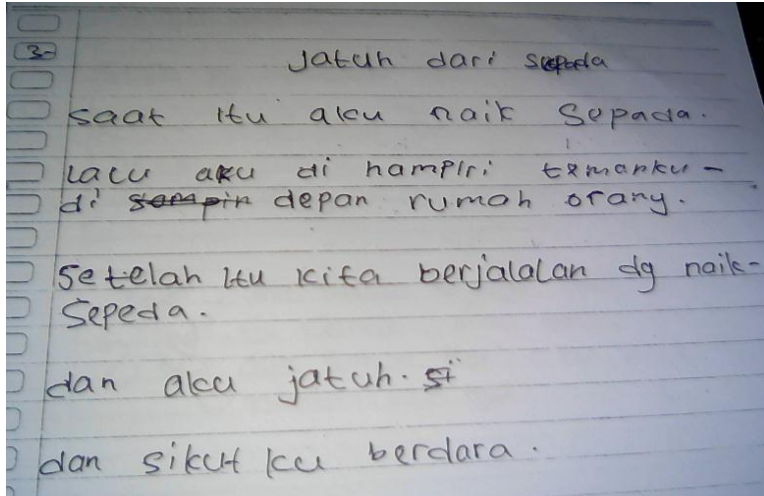 3-
Jatuh dari sepeda
saat itu aku naik Sepada.
lalu aku di hampiri temanku -
di sampin depan rumah orang.
Setelah itu kita berjalalan dg naik-
Sepeda.
dan aku jatuh. si
dan sikut ku berdara.